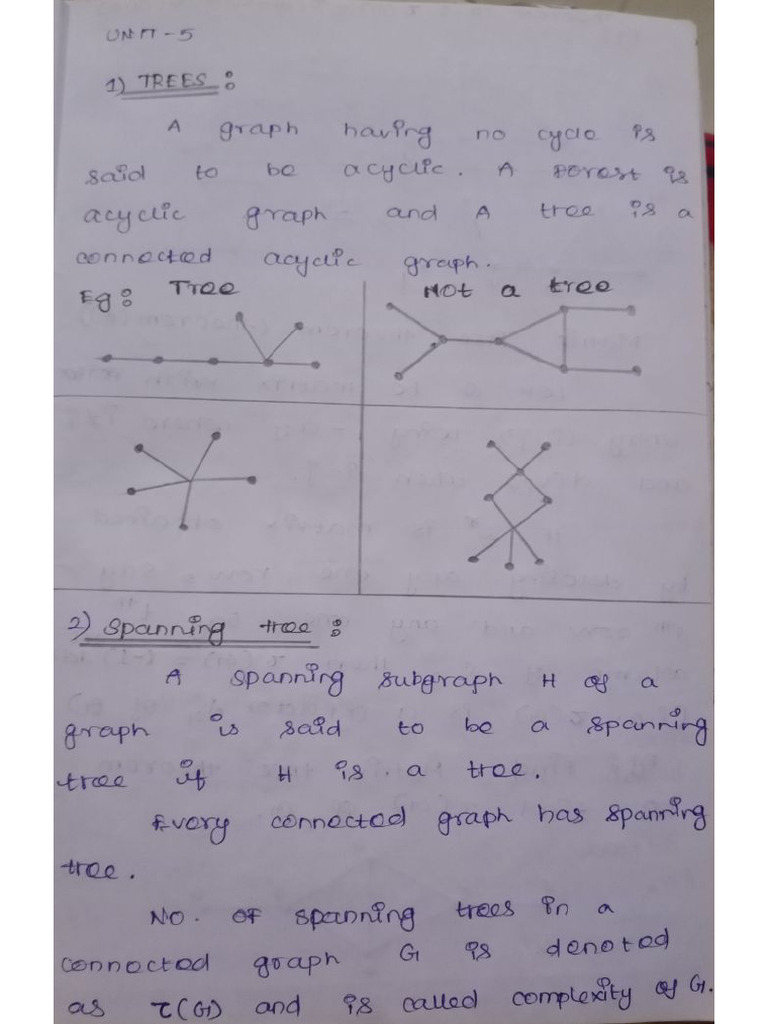 UNIT - 5
1) TREES :
A graph having no cycle is
said to be acyclic. A Forest is
acyclic graph and A tree is a
connected acyclic graph.
Eg: Tree
Not a tree
2) Spanning tree :
A spanning subgraph H of a
graph is said to be a spanning
tree if H is a tree.
Every connected graph has spanning
tree.
No. of spanning trees in a
connected graph G is denoted
as τ(G) and is called complexity of G.